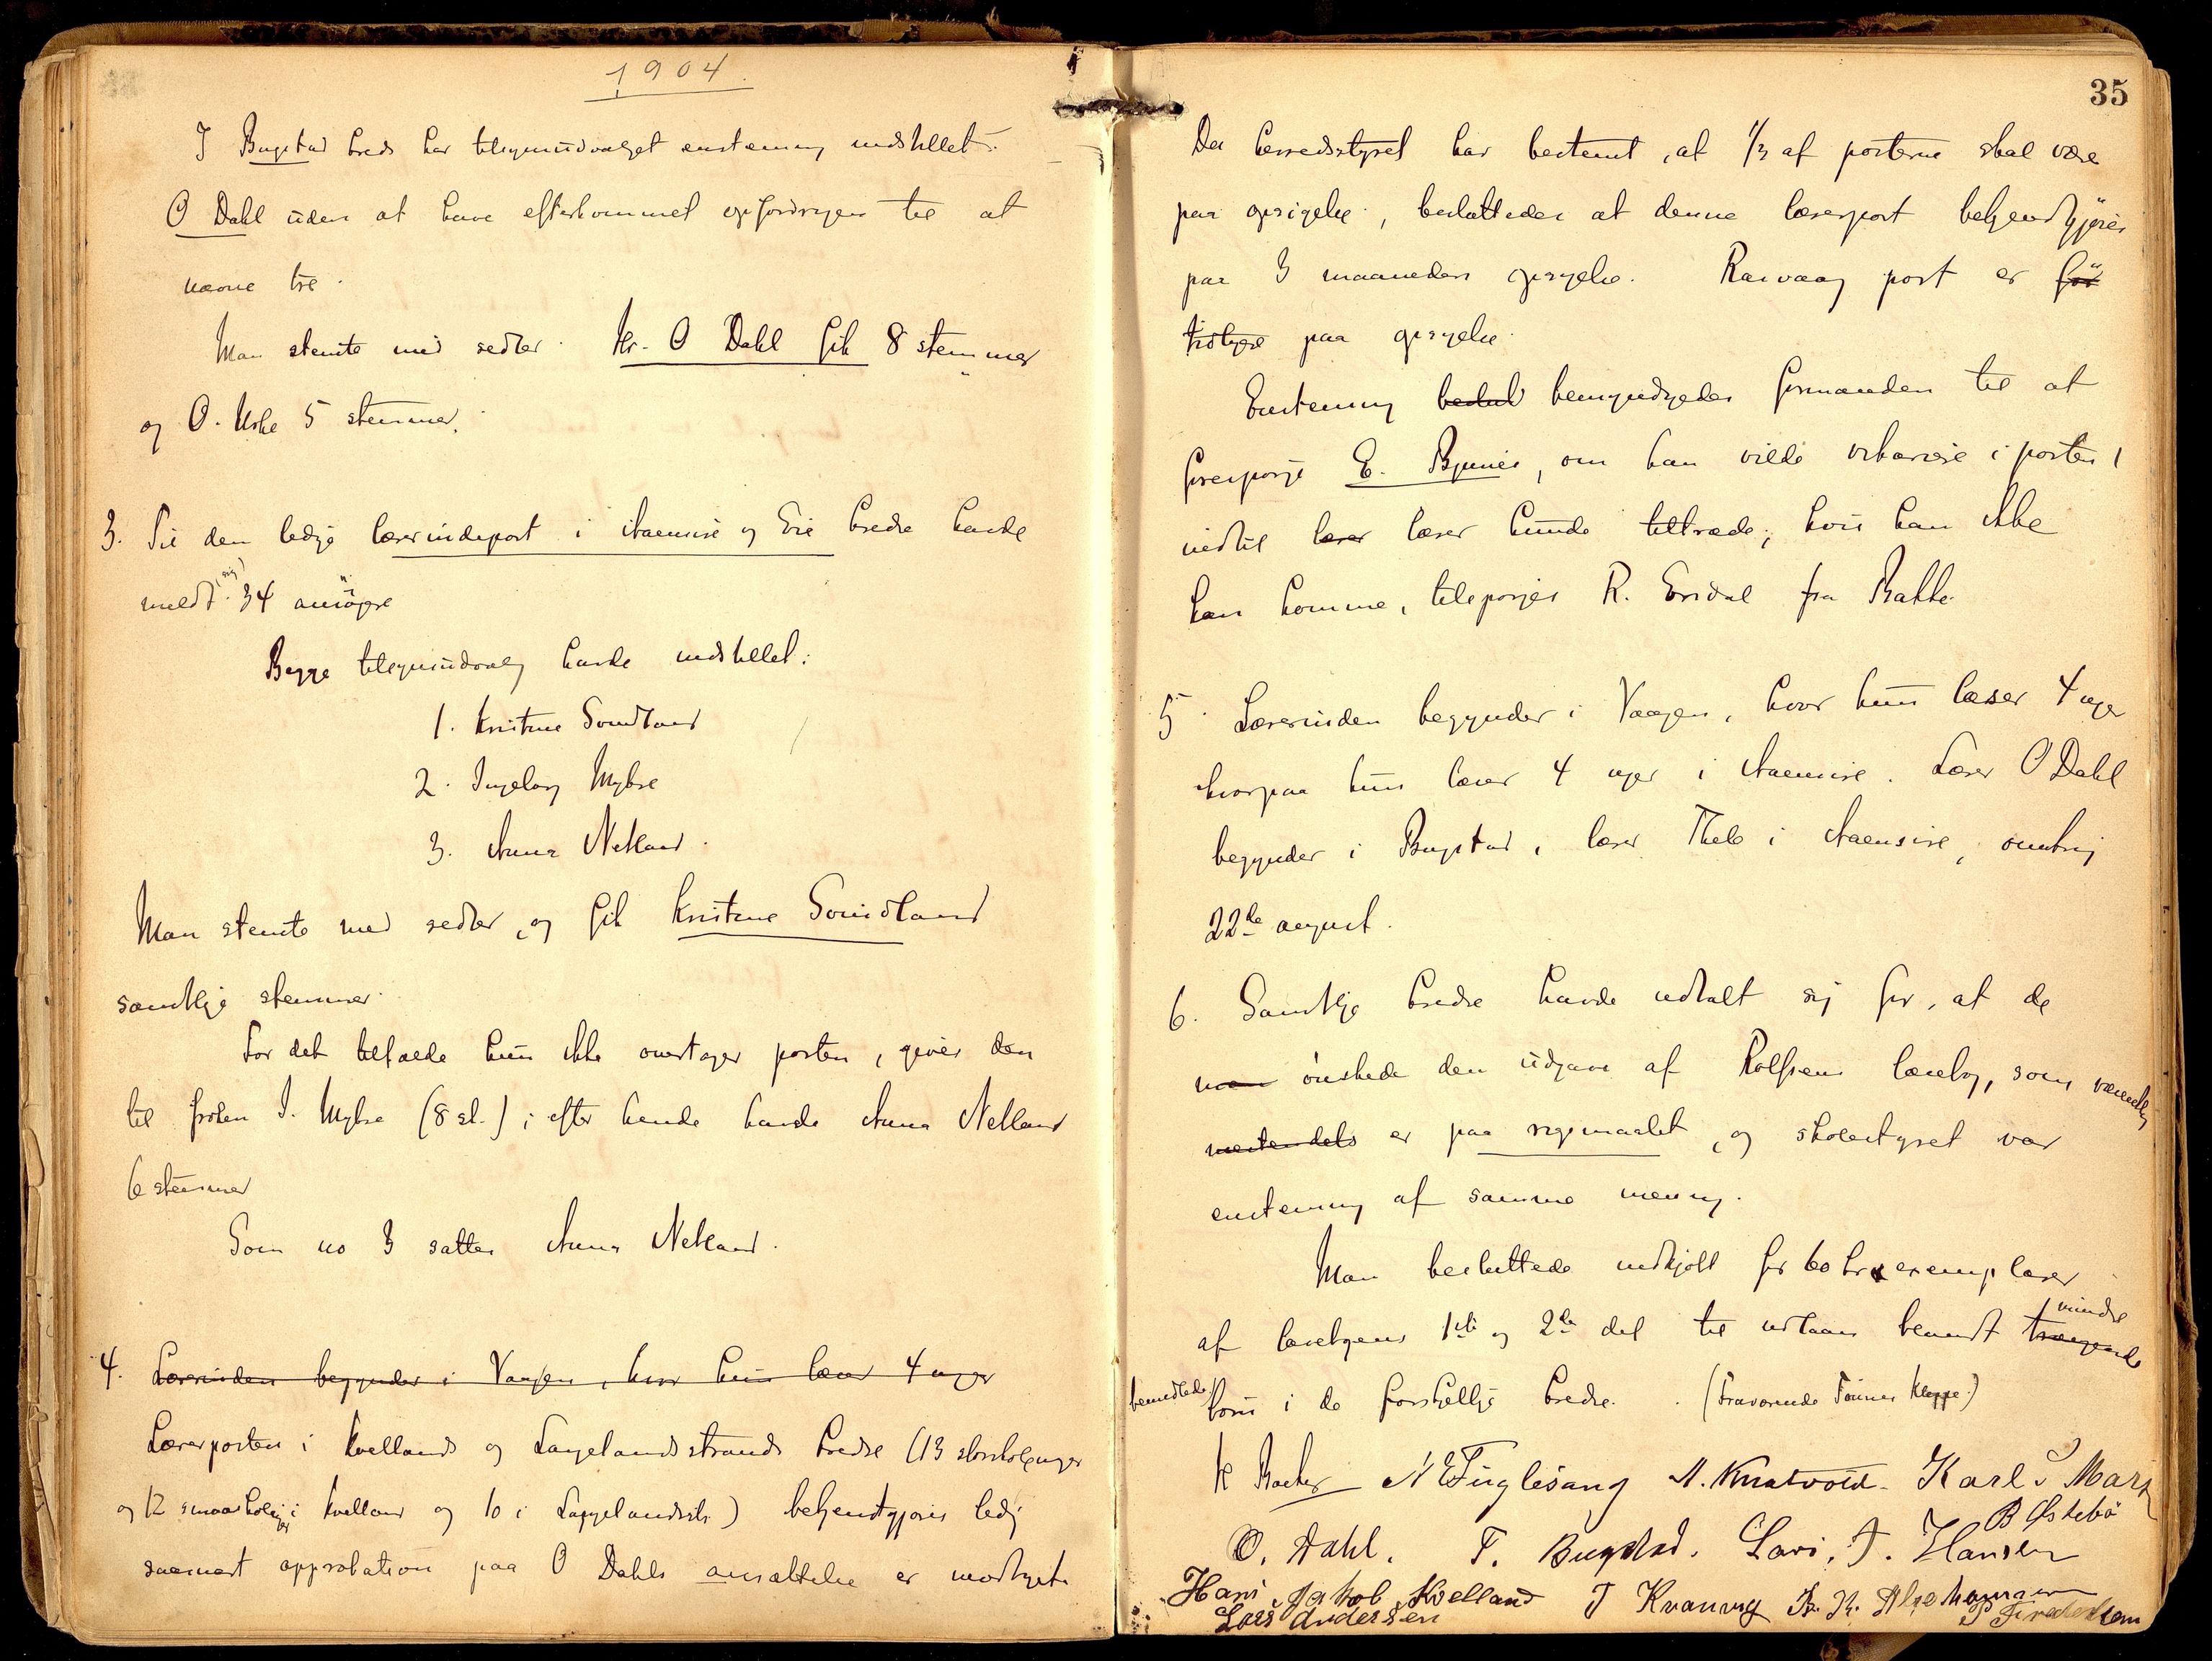 1904.
I Bugstad kreds har tilsynsudvalget enstemmig indstillet
O Dahl uden at have efterkommet opfordringen til at
nævne tre.
Man stemte med sedler. Kr. O Dahl fik 8 stemmer
og O. Uske 5 stemmer.
3. Til den ledige lærerindepost i Aaensire og Eie kredse havde
meldt (sig) 34 ansögere
Begge tilsynsudvalg havde indstillet:
1. Kristine Somdland
2. Ingeborg Myhre
3. Anna Netland.
Man stemte med sedler, og fik Kristine Somdland
samtlige stemmer.
For det tilfælde hun ikke overtager posten, gives den
til fröken I. Myhre (8 st.); efter hende havde Anna Netland
6 stemmer
Som no 3 sattes Anna Netland.
4. Lærerinden begynder i Vaagen, hvor hun læser 4 uger
Lærerposten i Kvellands og Langelandsstrands kredse (13 storskoleuger
og 12 smaaskoleuger i Kvelland og 10 i Langelandsstr.) bekjendtgjøres ledig
snarest approbation paa O Dahls ansættelse er modtaget.
35
Da herredsstyret har bestemt, at 1/3 af posterne skal være
paa opsigelse, besluttedes at denne lærerpost bekjendtgjøres
paa 3 maaneders opsigelse. Rasvaag post er før
tidligere paa opsigelse.
Enstemmig beslut bemyndigedes formanden til at
forespørge E. Bjunes, om han vilde vikariere i posten,
indtil lærer lærer kunde tiltræde; hvis han ikke
kan komme, tilspørges R. Ersdal fra Bakke.
5. Lærerinden begynder i Vaagen, hvor hun læser 4 uger
hvorpaa hun læser 4 uger i Aaensire. Lærer O Dahl
begynder i Bugstad, lærer Thele i Aaensire, omkring
22de august.
6. Samtlige kredse havde udtalt sig for, at de
man ønskede den udgave af Rolfsens læsebog, som væsentlig
mestendels er paa rigsmaalet, og skolestyret var
enstemmig af samme mening.
Man besluttede indkjøbt for 60 kr exemplarer
af læsebogens 1ste og 2den del til udlaan blandt trængende mindre
bemidlede börn i de forskjellige kredse. (Fraværende Tönnes Kleppe.)
K Barker N E Fuglesang A. Knatvold. Karl S Marz
B Østebö
O. Dahl. T. Bugstad. Lavi. J. Hansen
Hans Jakob Kvelland T Kvanvig B. K. Abrahamsen
Lars Andersen P Fredriksen